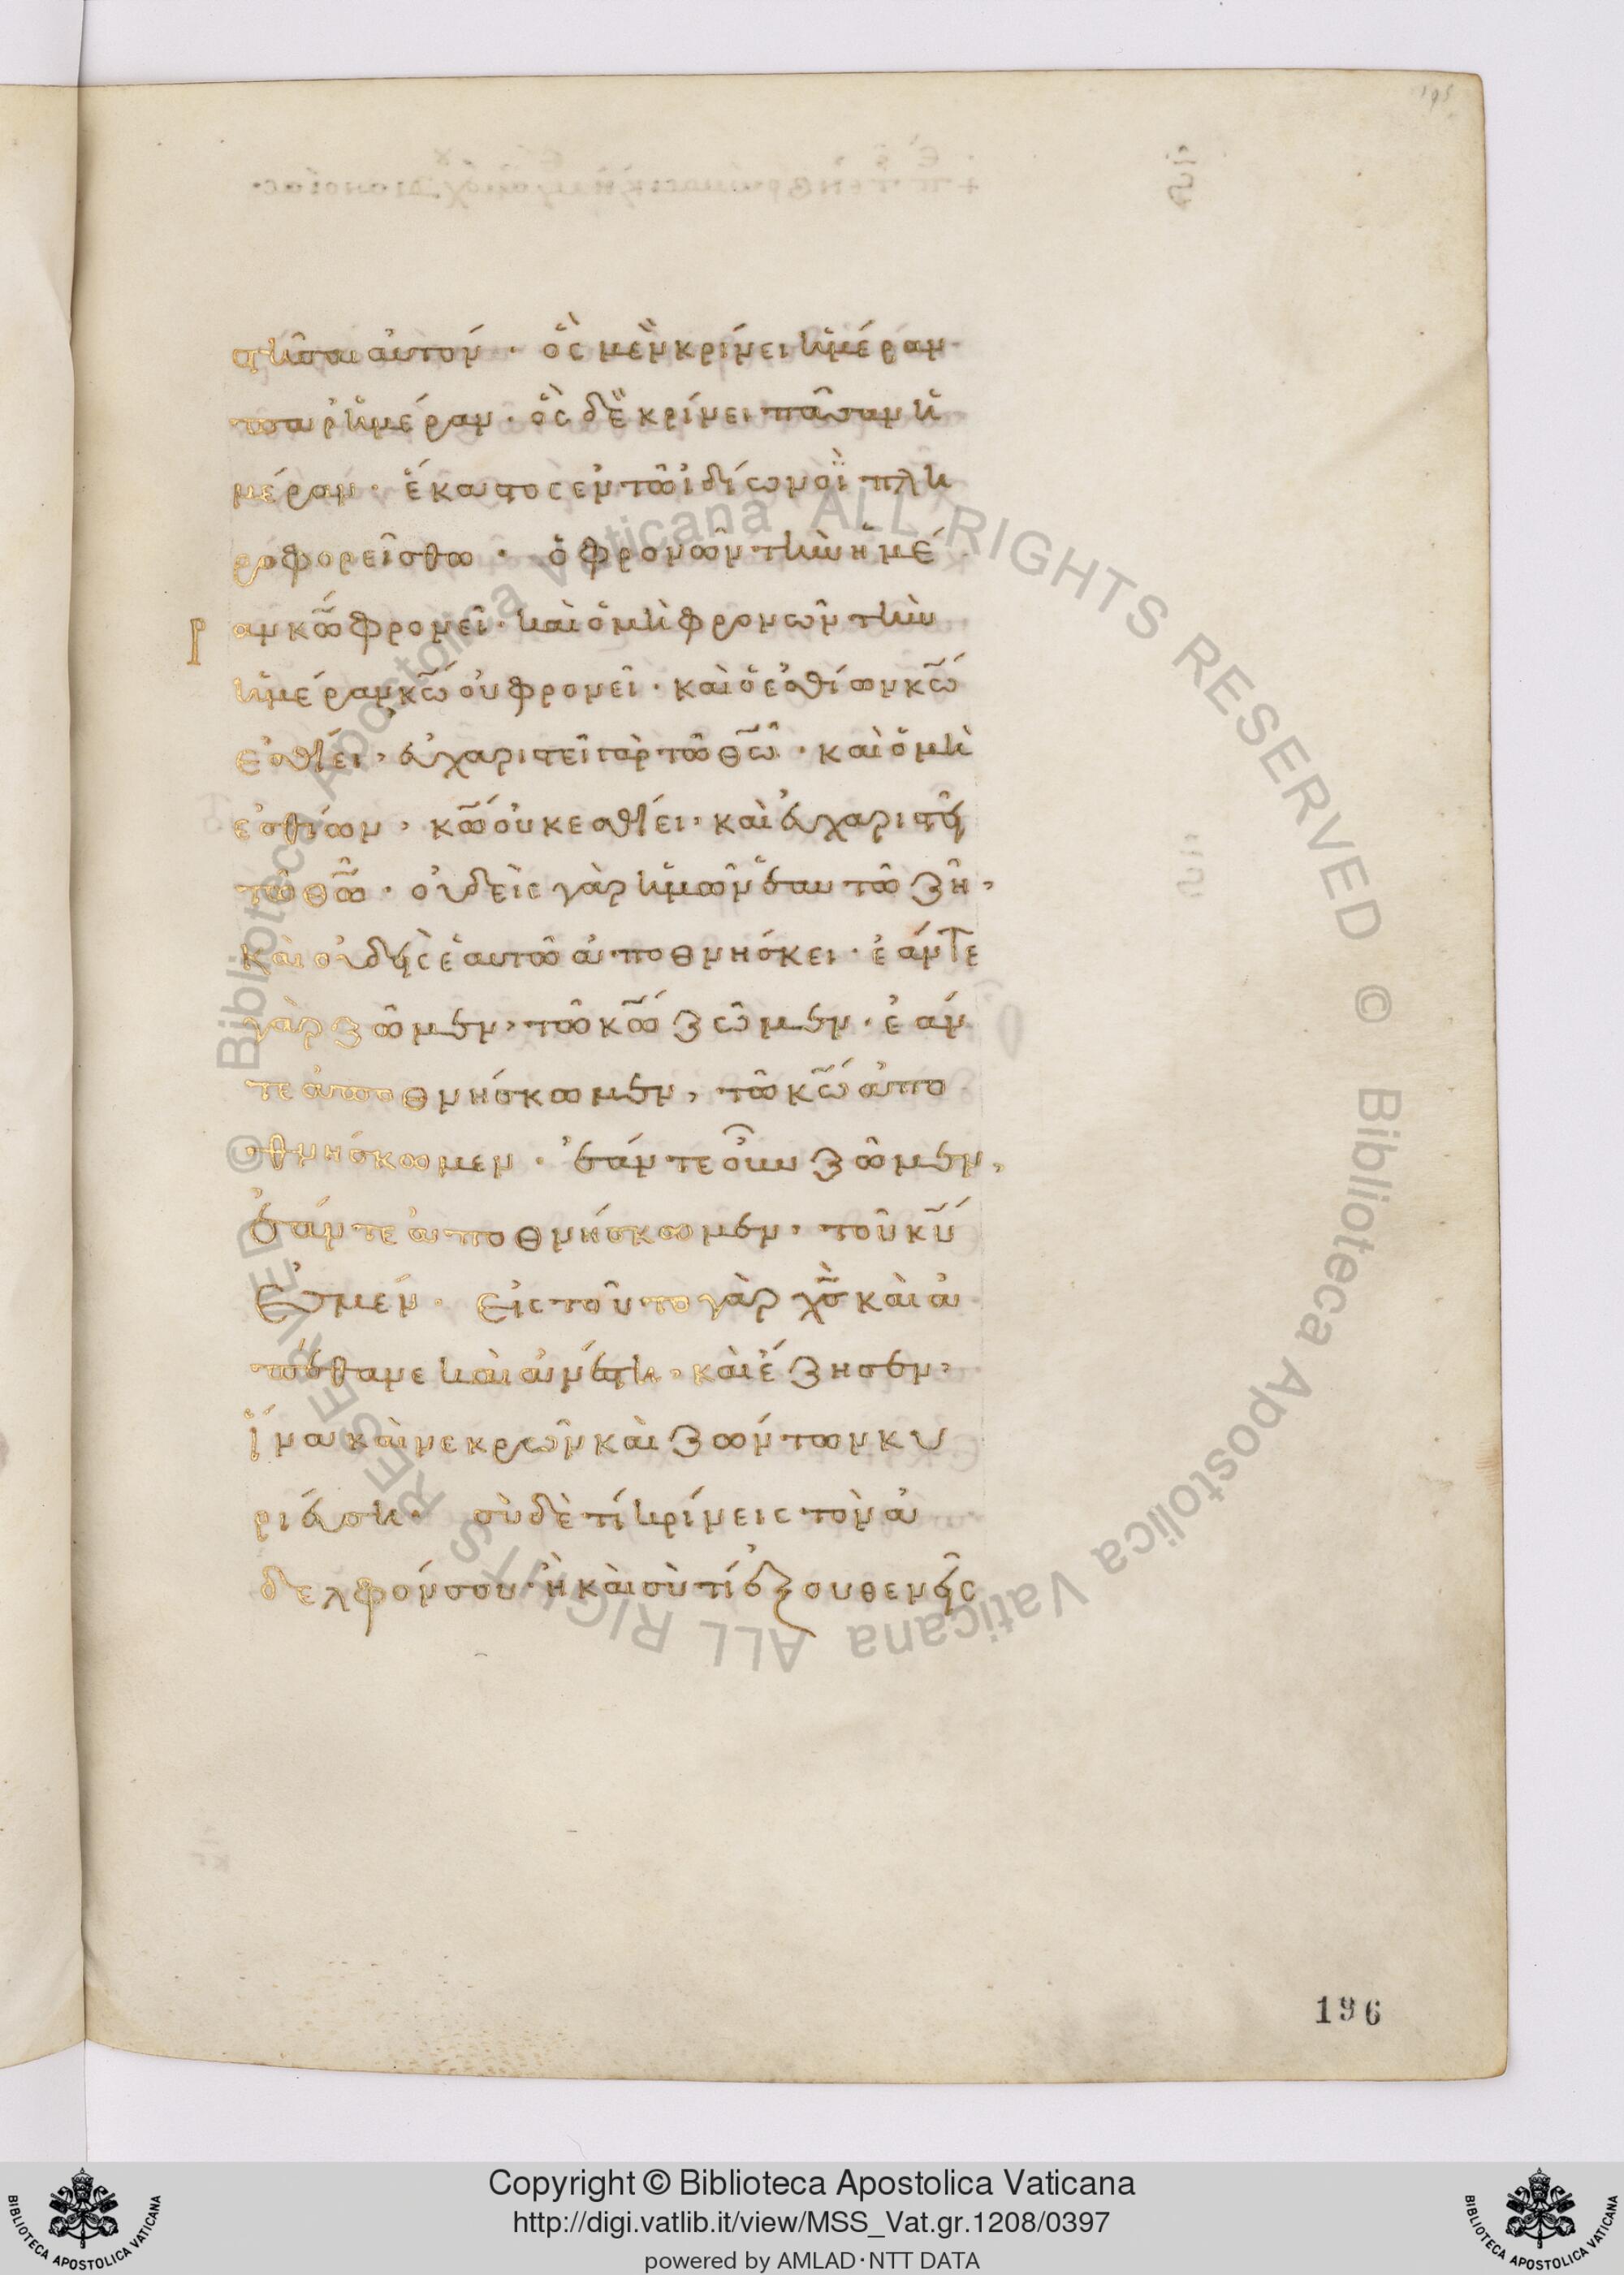 στῆσαι αὐτόν · ὃς μὲν κρίνει ἡμέραν
παρ ἡμέραν · ὃς δὲ κρίνει πᾶσαν ἡ
μέραν · ἕκαστος ἐν τῶ ἰδίω νοῒ πλη
ροφορείσθω · ὁ φρονῶν τὴν ἡμέ
ραν κω̅ φρονεῖ · καὶ ὁ μὴ φρονῶν τὴν
ἡμέραν κω̅ οὐ φρονεῖ · καὶ ὁ ἐσθίων κω̅
ἐσθίει · εὐχαριστεῖ γὰρ τῶ θω̅ · καὶ ὁ μὴ
ἐσθίων · κω̅ οὐκ ἐσθίει · καὶ εὐχαριστεῖ
τῶ θω̅ · οὐδεὶς γὰρ ἡμῶν ἑαυτῶ ζῆ ·
καὶ οὐδεὶς ἑαυτῶ ἀποθνήσκει · ἐάν τε
γὰρ ζῶμεν · τῶ κω̅ ζῶμεν · ἐάν
τε ἀποθνήσκωμεν, τῶ κω̅ ἀπο
θνήσκωμεν · ἐάν τε οὖν ζῶμεν,
ἐάν τε ἀποθνήσκωμεν · τοῦ κυ̅
ἐσμέν · εἰς τοῦτο γὰρ χς̅ καὶ ἀ
πέθανε καὶ ἀνέστη · καὶ ἔζησεν ·
ἵνα καὶ νεκρῶν καὶ ζώντων κυ
ριεύση · σὺ δὲ τί κρίνεις τὸν ἀ
δελφόν σου · ἢ καὶ σὺ τί ἐξουθενεῖς
196
© Biblioteca Apostolica Vaticana ALL RIGHTS RESERVED © Biblioteca Apostolica Vaticana ALL RIGHTS RESERVED
Copyright © Biblioteca Apostolica Vaticana
http://digi.vatlib.it/view/MSS_Vat.gr.1208/0397
powered by AMLAD·NTT DATA
BIBLIOTECA APOSTOLICA VATICANA
BIBLIOTECA APOSTOLICA VATICANA